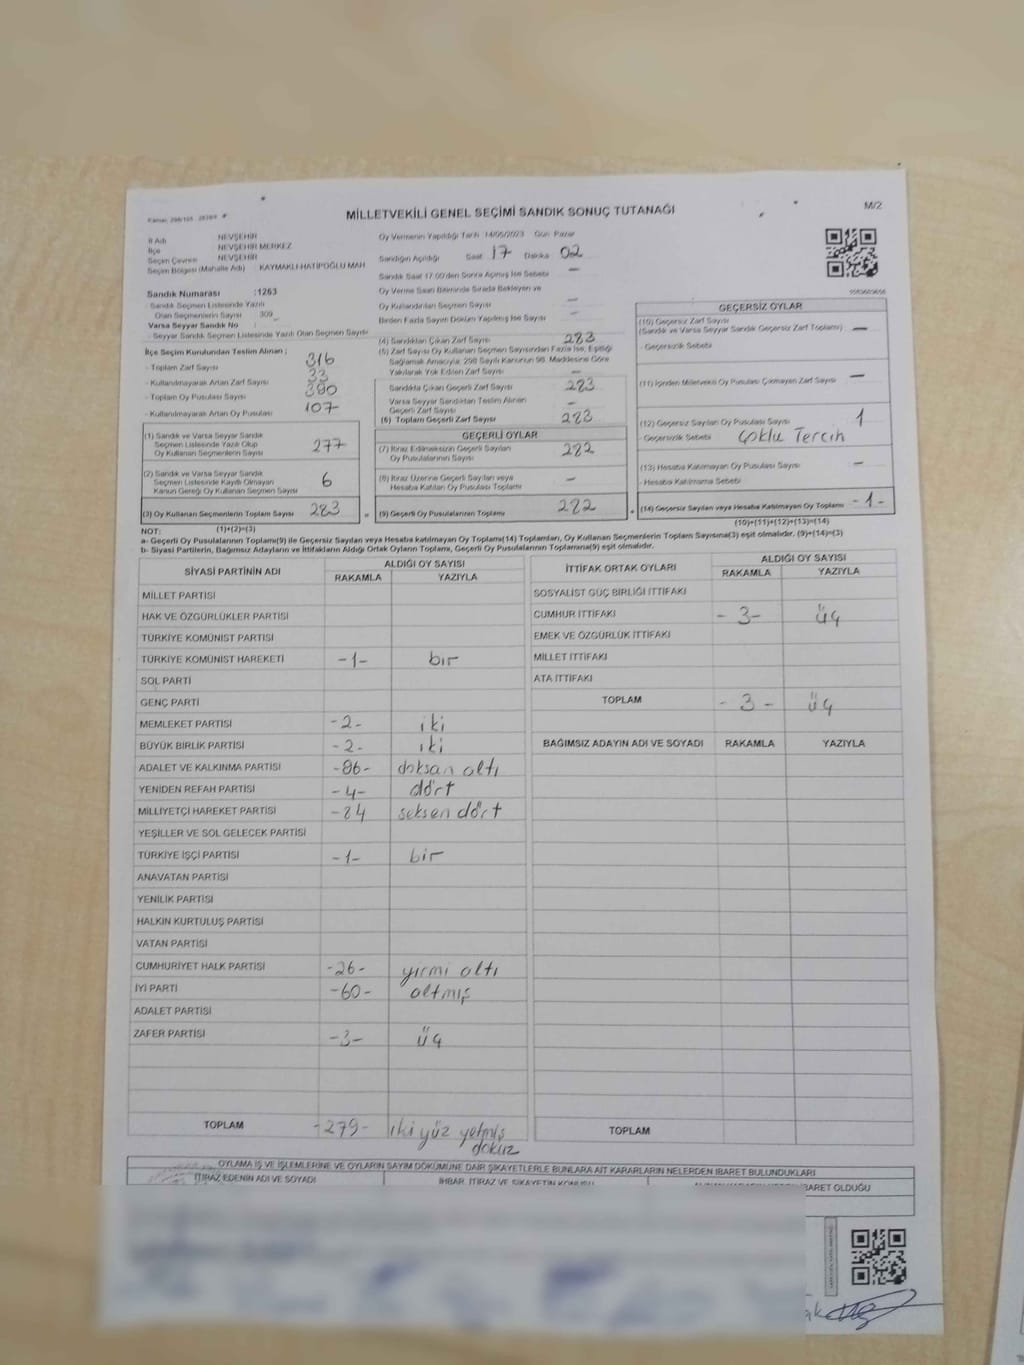 MİLLETVEKİLİ GENEL SEÇİMİ SANDIK SONUÇ TUTANAĞI
M/2
İl Adı NEVŞEHİR
İlçe NEVŞEHİR MERKEZ
Seçim Çevresi NEVŞEHİR
Seçim Bölgesi (Mahalle Adı) : KAYMAKLI-HATİPOĞLU MAH
Sandık Numarası :1263
Sandık Seçmen Listesinde Yazılı
Olan Seçmenlerin Sayısı 309
Varsa Seyyar Sandık No :
Seyyar Sandık Seçmen Listesinde Yazılı Olan Seçmen Sayısı
İlçe Seçim Kurulundan Teslim Alınan ;
- Toplam Zarf Sayısı 316
- Kullanılmayarak Artan Zarf Sayısı 33
- Toplam Oy Pusulası Sayısı 390
- Kullanılmayarak Artan Oy Pusulası 107
(1) Sandık ve Varsa Seyyar Sandık
Seçmen Listesinde Yazılı Olup
Oy Kullanan Seçmenlerin Sayısı 277
(2) Sandık ve Varsa Seyyar Sandık
Seçmen Listesinde Kayıtlı Olmayan
Kanun Gereği Oy Kullanan Seçmen Sayısı 6
(3) Oy Kullanan Seçmenlerin Toplam Sayısı 283
Oy Vermenin Yapıldığı Tarih 14/05/2023 Gün Pazar
Sandığın Açıldığı Saat 17 Dakika 02
Sandık Saat 17.00'den Sonra Açılmış İse Sebebi –
Oy Verme Saati Bitiminde Sırada Bekleyen ve
Oy Kullandırılan Seçmen Sayısı –
Birden Fazla Sayım Döküm Yapılmış İse Sayısı –
(4) Sandıktan Çıkan Zarf Sayısı 283
(5) Zarf Sayısı Oy Kullanan Seçmen Sayısından Fazla İse, Eşitliği
Sağlamak Amacıyla, 298 Sayılı Kanunun 98. Maddesine Göre
Yakılarak Yok Edilen Zarf Sayısı –
Sandıkta Çıkan Geçerli Zarf Sayısı 283
Varsa Seyyar Sandıktan Teslim Alınan
Geçerli Zarf Sayısı –
(6) Toplam Geçerli Zarf Sayısı 283
GEÇERLİ OYLAR
(7) İtiraz Edilmeksizin Geçerli Sayılan
Oy Pusulalarının Sayısı 282
(8) İtiraz Üzerine Geçerli Sayılan veya
Hesaba Katılan Oy Pusulası Toplamı –
= (9) Geçerli Oy Pusulalarının Toplamı 282
GEÇERSİZ OYLAR
(10) Geçersiz Zarf Sayısı
(Sandık ve Varsa Seyyar Sandık Geçersiz Zarf Toplamı) –
- Geçersizlik Sebebi
(11) İçinden Milletvekili Oy Pusulası Çıkmayan Zarf Sayısı –
(12) Geçersiz Sayılan Oy Pusulası Sayısı 1
- Geçersizlik Sebebi Çoklu Tercih
(13) Hesaba Katılmayan Oy Pusulası Sayısı –
- Hesaba Katılmama Sebebi
+ (14) Geçersiz Sayılan veya Hesaba Katılmayan Oy Toplamı -1-
NOT: (1)+(2)=(3)
(10)+(11)+(12)+(13)=(14)
a- Geçerli Oy Pusulalarının Toplamı(9) ile Geçersiz Sayılan veya Hesaba katılmayan Oy Toplamı(14) Toplamları, Oy Kullanan Seçmenlerin Toplam Sayısına(3) eşit olmalıdır. (9)+(14)=(3)
b- Siyasi Partilerin, Bağımsız Adayların ve İttifakların Aldığı Ortak Oyların Toplamı, Geçerli Oy Pusulalarının Toplamına(9) eşit olmalıdır.
SİYASİ PARTİNİN ADI ALDIĞI OY SAYISI
RAKAMLA YAZIYLA
MİLLET PARTİSİ
HAK VE ÖZGÜRLÜKLER PARTİSİ
TÜRKİYE KOMÜNİST PARTİSİ
TÜRKİYE KOMÜNİST HAREKETİ -1- bir
SOL PARTİ
GENÇ PARTİ
MEMLEKET PARTİSİ -2- iki
BÜYÜK BİRLİK PARTİSİ -2- iki
ADALET VE KALKINMA PARTİSİ -96- doksan altı
YENİDEN REFAH PARTİSİ -4- dört
MİLLİYETÇİ HAREKET PARTİSİ -84 seksen dört
YEŞİLLER VE SOL GELECEK PARTİSİ
TÜRKİYE İŞÇİ PARTİSİ -1- bir
ANAVATAN PARTİSİ
YENİLİK PARTİSİ
HALKIN KURTULUŞ PARTİSİ
VATAN PARTİSİ
CUMHURİYET HALK PARTİSİ -26- yirmi altı
İYİ PARTİ -60- altmış
ADALET PARTİSİ
ZAFER PARTİSİ -3- üç
TOPLAM -279- iki yüz yetmiş
dokuz
İTTİFAK ORTAK OYLARI ALDIĞI OY SAYISI
RAKAMLA YAZIYLA
SOSYALİST GÜÇ BİRLİĞİ İTTİFAKI
CUMHUR İTTİFAKI -3- üç
EMEK VE ÖZGÜRLÜK İTTİFAKI
MİLLET İTTİFAKI
ATA İTTİFAKI
TOPLAM -3- üç
BAĞIMSIZ ADAYIN ADI VE SOYADI RAKAMLA YAZIYLA
TOPLAM
OYLAMA İŞ VE İŞLEMLERİNE VE OYLARIN SAYIM DÖKÜMÜNE DAİR ŞİKAYETLERLE BUNLARA AİT KARARLARIN NELERDEN İBARET BULUNDUKLARI
İTİRAZ EDENİN ADI VE SOYADI
İHBAR, İTİRAZ VE ŞİKAYETİN KONUSU
İBARET OLDUĞU